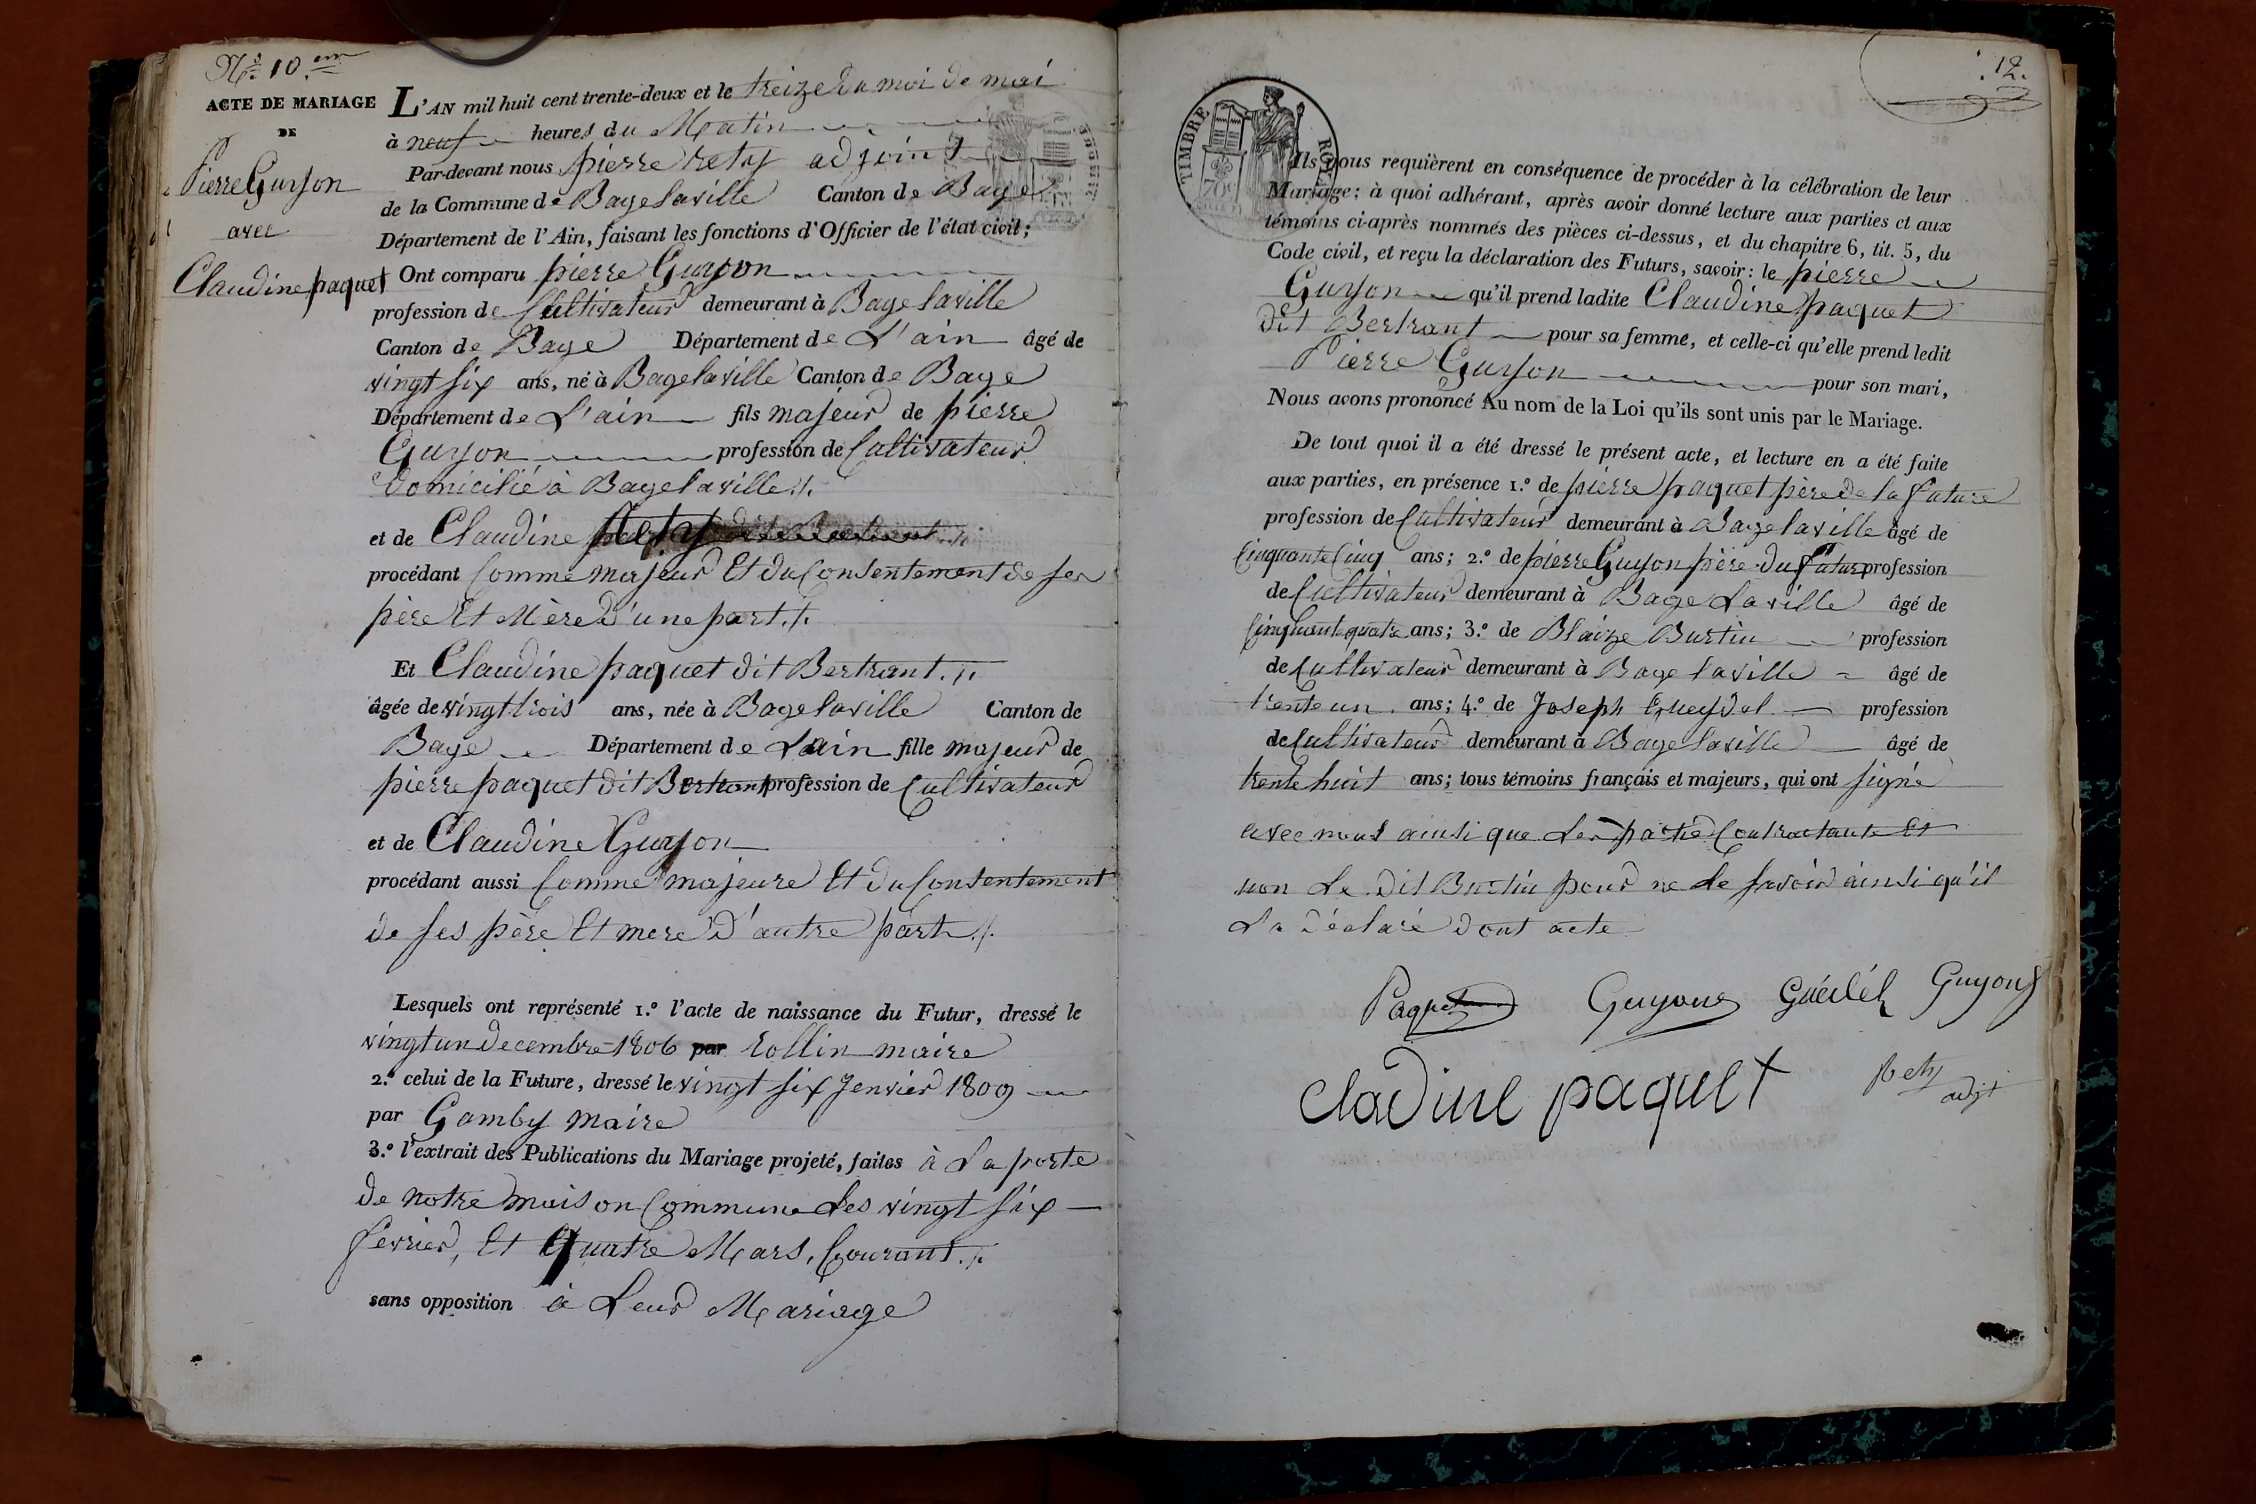 N.o 10 em
ACTE DE MARIAGE
DE
Pierre Guyon
avec
Claudine paquet
L'AN mil huit cent trente-deux et le treize du moi de mai
à neuf heures du Matin
Par-devant nous pierre rety adjoint
de la Commune de Bagelaville Canton de Bage
Département de l'Ain, faisant les fonctions d'Officier de l'état civil;
Ont comparu pierre Guyon
profession de Cultivateur demeurant à Bagelaville
Canton de Bage Département de L'ain âgé de
vingt six ans, né à Bagelaville Canton de Bage
Département de L'ain fils majeur de pierre
Guyon profession de Cultivateur
domicilié à Bagelaville ./.
et de Claudine
procédant Comme majeur Et du Consentement de ses
père Et Mère d'une part ./.
Et Claudine paquet dit Bertrant ./.
âgée de vingt trois ans, née à Bagelaville Canton de
Bage Département de Lain fille majeur de
pierre paquet dit Bertrant profession de Cultivateur
et de Claudine Guyon
procédant aussi Comme majeure Et du Consentement
de ses père Et mere D'autre part ./.
Lesquels ont représenté 1.º l'acte de naissance du Futur, dressé le
vingt un decembre 1806 par Collin maire
2.º celui de la Future, dressé le vingt six Jenvier 1809
par Gamby maire
3.º l'extrait des Publications du Mariage projeté, faites à La porte
de notre maison Commune Les vingt six
fevrier, Et Quatre Mars, Courant ./.
sans opposition à Leur Mariage
12.
TIMBRE ROYAL
70
Ils nous requièrent en conséquence de procéder à la célébration de leur
Mariage: à quoi adhérant, après avoir donné lecture aux parties et aux
témoins ci-après nommés des pièces ci-dessus, et du chapitre 6, tit. 5, du
Code civil, et reçu la déclaration des Futurs, savoir: le pierre
Guyon qu'il prend ladite Claudine paquet
dit Bertrant pour sa femme, et celle-ci qu'elle prend ledit
Pierre Guyon pour son mari,
Nous avons prononcé Au nom de la Loi qu'ils sont unis par le Mariage.
De tout quoi il a été dressé le présent acte, et lecture en a été faite
aux parties, en présence 1.º de pierre paquet père de la future
profession de Cultivateur demeurant à Bagelaville âgé de
Cinquante Cinq ans; 2.º de pierre Guyon père du futur profession
de Cultivateur demeurant à Bage Laville âgé de
Cinquante quatre ans; 3.º de Blaize Burtin profession
de Cultivateur demeurant à Bage laville âgé de
trente un ans; 4.º de Joseph profession
de Cultivateur demeurant à Bage laville âgé de
trente huit ans; tous témoins français et majeurs, qui ont signé
avec nous ainsi que Les partie Contractante Et
non Le dit Burtin pour ne Le savoir ainsi qu'il
La déclaré dont acte
Paquet Guyon Guéidel Guyon
Cladine paquet
Rety adjt